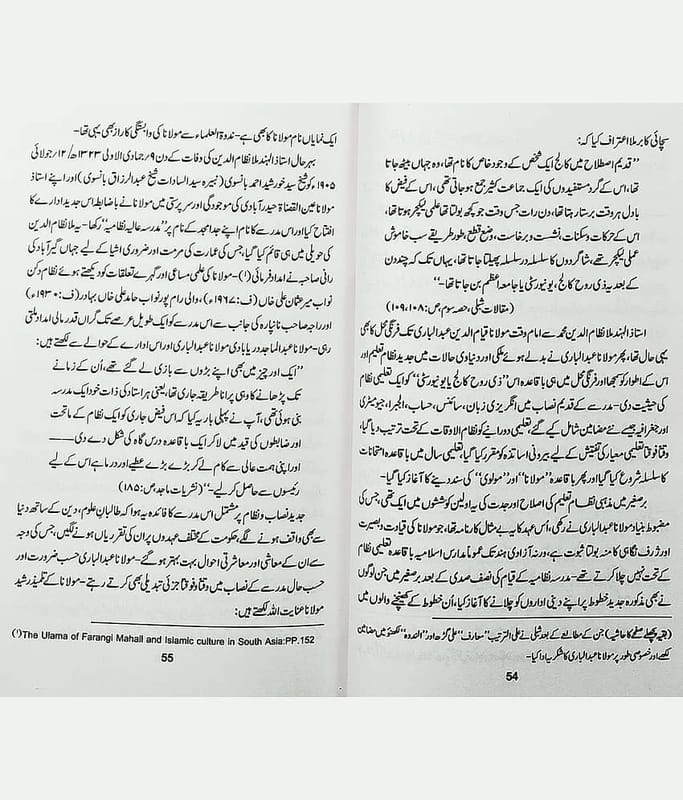 سچائی کا برملا اعتراف کیا کہ:
”قدیم اصطلاح میں کالج ایک شخص کے وجود خاص کا نام تھا، وہ جہاں بیٹھ جاتا
تھا، اس کے گرد مستفیدوں کی ایک جماعت کثیر جمع ہو جاتی تھی، اس کے فیض کا
بادل ہر وقت برستا رہتا تھا، دن رات جس وقت جو کچھ بولتا تھا علمی لیکچر ہوتا تھا،
اس کے حرکات و سکنات، نشست و برخاست، وضع قطع، بطور طریقے سب خاموش
عملی لیکچر تھے، شاگردوں کا سلسلہ در سلسلہ پھیلتا جاتا تھا، یہاں تک کہ چند دن
کے بعد یہ ذی روح کالج، یونیورسٹی یا جامعہ اعظم بن جاتا تھا۔“
(مقالات شبلی، حصہ سوم، ص: ۱۰۸، ۱۰۹)
استاذ الہند ملا نظام الدین محمد سے امام وقت مولانا قیام الدین عبدالباری تک فرنگی محل کا بھی
یہی حال تھا، پھر مولانا عبدالباری نے بدلے ہوئے ملکی اور دنیاوی حالات میں جدید نظام تعلیم اور
اس کے اطوار کو سمجھا اور فرنگی محل میں ہی با قاعدہ اس ”ذی روح کالج یا یونیورسٹی“ کو ایک تعلیمی نظام
کی حیثیت دی۔ مدرسے کے قدیم نصاب میں انگریزی زبان، سائنس، حساب، الجبرا، جیومیٹری
اور جغرافیہ جیسے نئے مضامین شامل کیے گئے، تعلیمی دورانے کو نظام الاوقات کے تحت ترتیب دیا گیا،
وقتا فوقتا تعلیمی معیار کی تفتیش کے لیے بیرونی اساتذہ کو مقرر کیا گیا، تعلیمی سال میں با قاعدہ امتحانات
کا سلسلہ شروع کیا گیا اور پھر باقاعدہ ”مولانا“ اور ”مولوی“ کی سند دینے کا آغاز کیا گیا۔
برصغیر میں مذہبی نظام تعلیم کی اصلاح اور جدت کی یہ اولین کوششوں میں ایک تھی، جس کی
مضبوط بنیاد مولانا عبدالباری نے رکھی، اس عہد کا یہ بے مثال کارنامہ تھا، جو مولانا کی قیادت و بصیرت
اور ژرف نگاہی کا منہ بولتا ثبوت ہے، ورنہ آزادی ہند تک عموماً مدارس اسلامیہ با قاعدہ تعلیمی نظام
کے تحت نہیں چلا کرتے تھے۔ مدرسہ نظامیہ کے قیام کی نصف صدی کے بعد برصغیر میں جن لوگوں
نے بھی مذکورہ جدید خطوط پر اپنے دینی اداروں کو چلانے کا آغاز کیا، ان خطوط کے کھینچنے والوں میں
(بقیہ پچھلے صفحے کا حاشیہ) جن کے مطالعے کے بعد شبلی نے علی الترتیب ”معارف“ علی گڑھ اور ”الندوہ“ لکھنؤ میں مضامین
لکھے اور خصوصی طور پر مولانا عبدالباری کا شکریہ ادا کیا۔
54
ایک نمایاں نام مولانا کا بھی ہے۔ ندوۃ العلماء سے مولانا کی وابستگی کا راز بھی یہی تھا۔
بہر حال استاذ الہند ملا نظام الدین کی وفات کے دن ۹؍جمادی الاولی ۱۳۲۳ھ/۱۲؍جولائی
۱۹۰۵ء کو شیخ سید خورشید احمد بانسوی (نبیرہ سید السادات شیخ عبدالرزاق بانسوی) اور اپنے استاذ
مولانا عین القضاۃ حیدرآبادی کی موجودگی اور سرپرستی میں مولانا نے باضابطہ اس جدید ادارے کا
افتتاح کیا اور اس مدرسے کا نام اپنے جد امجد کے نام پر ”مدرسہ عالیہ نظامیہ“ رکھا۔ یہ ملا نظام الدین
کی حویلی میں ہی قائم کیا گیا، جس کی عمارت کی مرمت اور ضروری اشیا کے لیے جہاں گیر آباد کی
رانی صاحبہ نے امداد فرمائی (۱)۔ مولانا کی علمی مساعی اور گہرے تعلقات کو دیکھتے ہوئے نظام دکن
نواب میر عثمان علی خاں (ف: ۱۹۶۷ء)، والی رام پور نواب حامد علی خاں بہادر (ف: ۱۹۳۰ء)
اور راجہ صاحب نانپارہ کی جانب سے اس مدرسے کو ایک طویل عرصے تک گراں قدر مالی امداد ملتی
رہی۔ مولانا عبدالماجد دریابادی مولانا عبدالباری اور اس ادارے کے حوالے سے لکھتے ہیں:
”ایک اور چیز میں بھی اپنے بڑوں سے بازی لے گئے تھے، اُن کے زمانے
تک پڑھانے کا وہی پرانا طریقہ جاری تھا، یعنی ہر استاد کی ذات خود ایک مدرسہ
بنی ہوئی تھی، آپ نے پہلی بار یہ کیا کہ اس فیض جاری کو ایک نظام کے ماتحت
اور ضابطوں کی قید میں لا کر ایک با قاعدہ درس گاہ کی شکل دے دی——
اور اپنی ہمت عالی سے کام لے کر بڑے بڑے عطیے اور درماہے اس کے لیے
رئیسوں سے حاصل کر لیے۔“ (نشریات ماجد، ص: ۱۸۵)
جدید نصاب و نظام پر مشتمل، اس مدرسے کا فائدہ یہ ہوا کہ طالبان علوم، دین کے ساتھ دنیا
سے بھی واقف ہونے لگے، حکومت کے مختلف عہدوں پر ان کی تقرریاں بھی ہونے لگیں، جس کی وجہ
سے ان کے معاشی اور معاشرتی احوال بہت بہتر ہو گئے۔ مولانا عبدالباری حسب ضرورت اور
حسب حال مدرسے کے نصاب میں وقتا فوقتا جزئی تبدیلی بھی کرتے رہے۔ مولانا کے تلمیذ رشید
مولانا عنایت اللہ لکھتے ہیں:
(۱) The Ulama of Farangi Mahall and Islamic culture in South Asia:PP.152
55